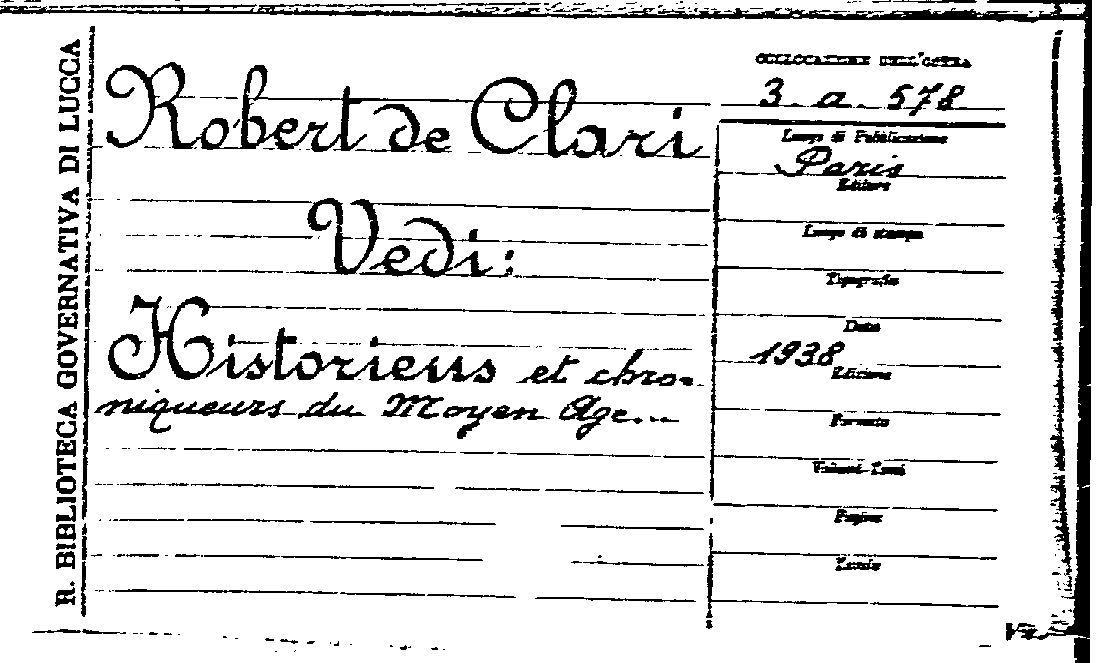 R. BIBLIOTECA GOVERNATIVA DI LUCCA
Robert de Clari
Vedi:
Historiens et chro-
niqueurs du Moyen Age...
COLLOCAZIONE DELL'OPERA
3. a. 578
Luogo di Pubblicazione
Paris
Editore
Luogo di stampa
Tipografia
Data
1938
Edizione
Formato
Volumi-Tomi
Pagine